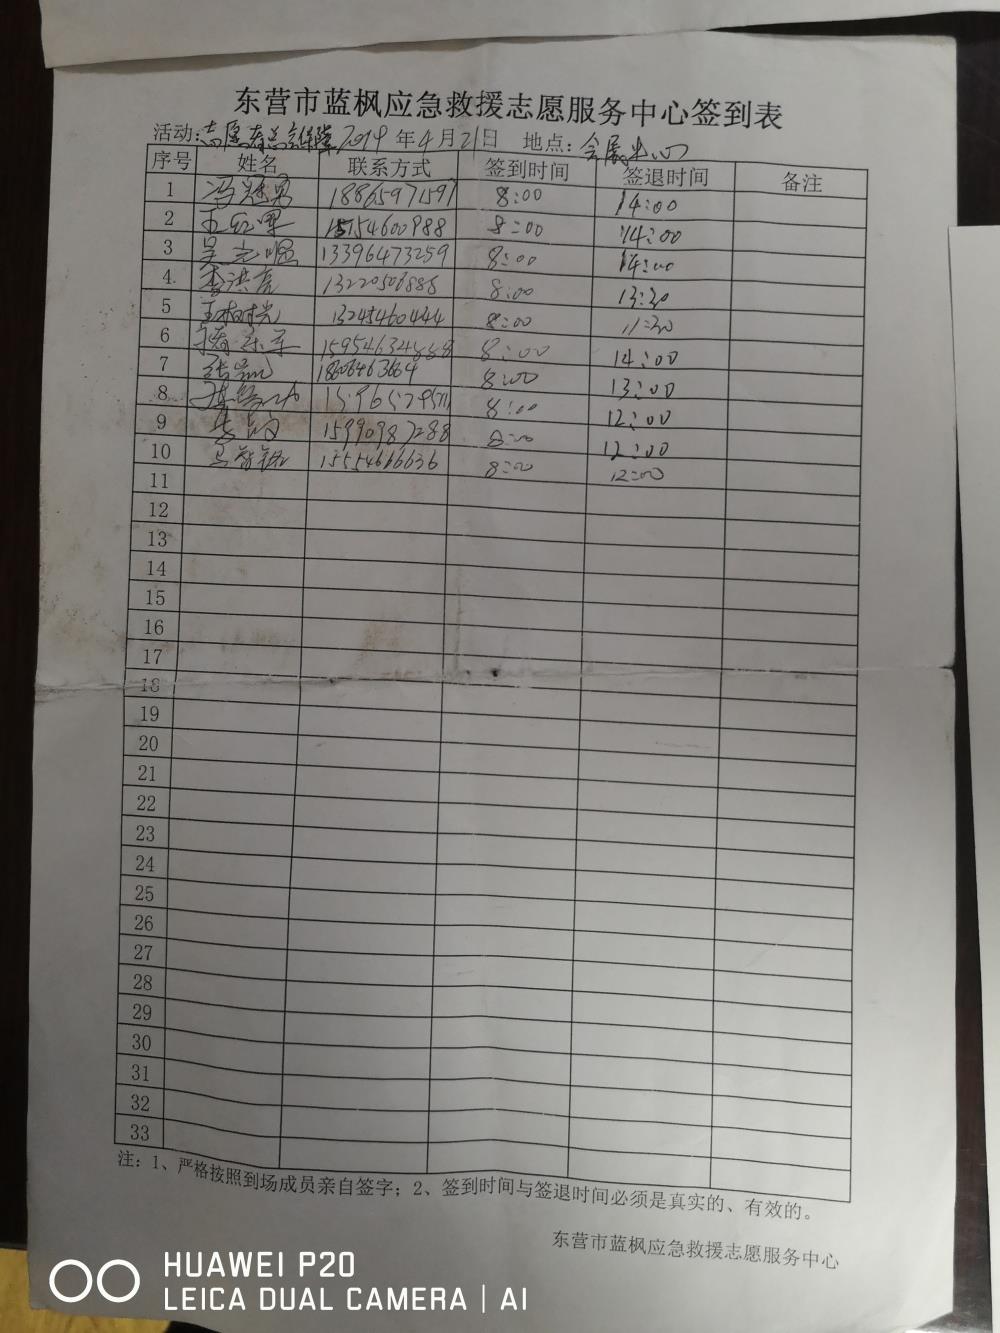 东营市蓝枫应急救援志愿服务中心签到表
活动: 2019年4月21日 地点: 会展中心
序号 姓名 联系方式 签到时间 签退时间 备注
1 冯冠男 18865971591 8:00 14:00
2 15154600988 8:00 14:00
3 13396473259 8:00 14:00
4 李洪亮 8:00 13:30
5 13245460444 8:00 11:30
6 8:00 14:00
7 18606463664 8:00 13:00
8 8:00 12:00
9 8:00 12:00
10 15554666636 8:00 12:00
11
12
13
14
15
16
17
18
19
20
21
22
23
24
25
26
27
28
29
30
31
32
33
注：1、严格按照到场成员亲自签字；2、签到时间与签退时间必须是真实的、有效的。
东营市蓝枫应急救援志愿服务中心
HUAWEI P20
LEICA DUAL CAMERA | AI